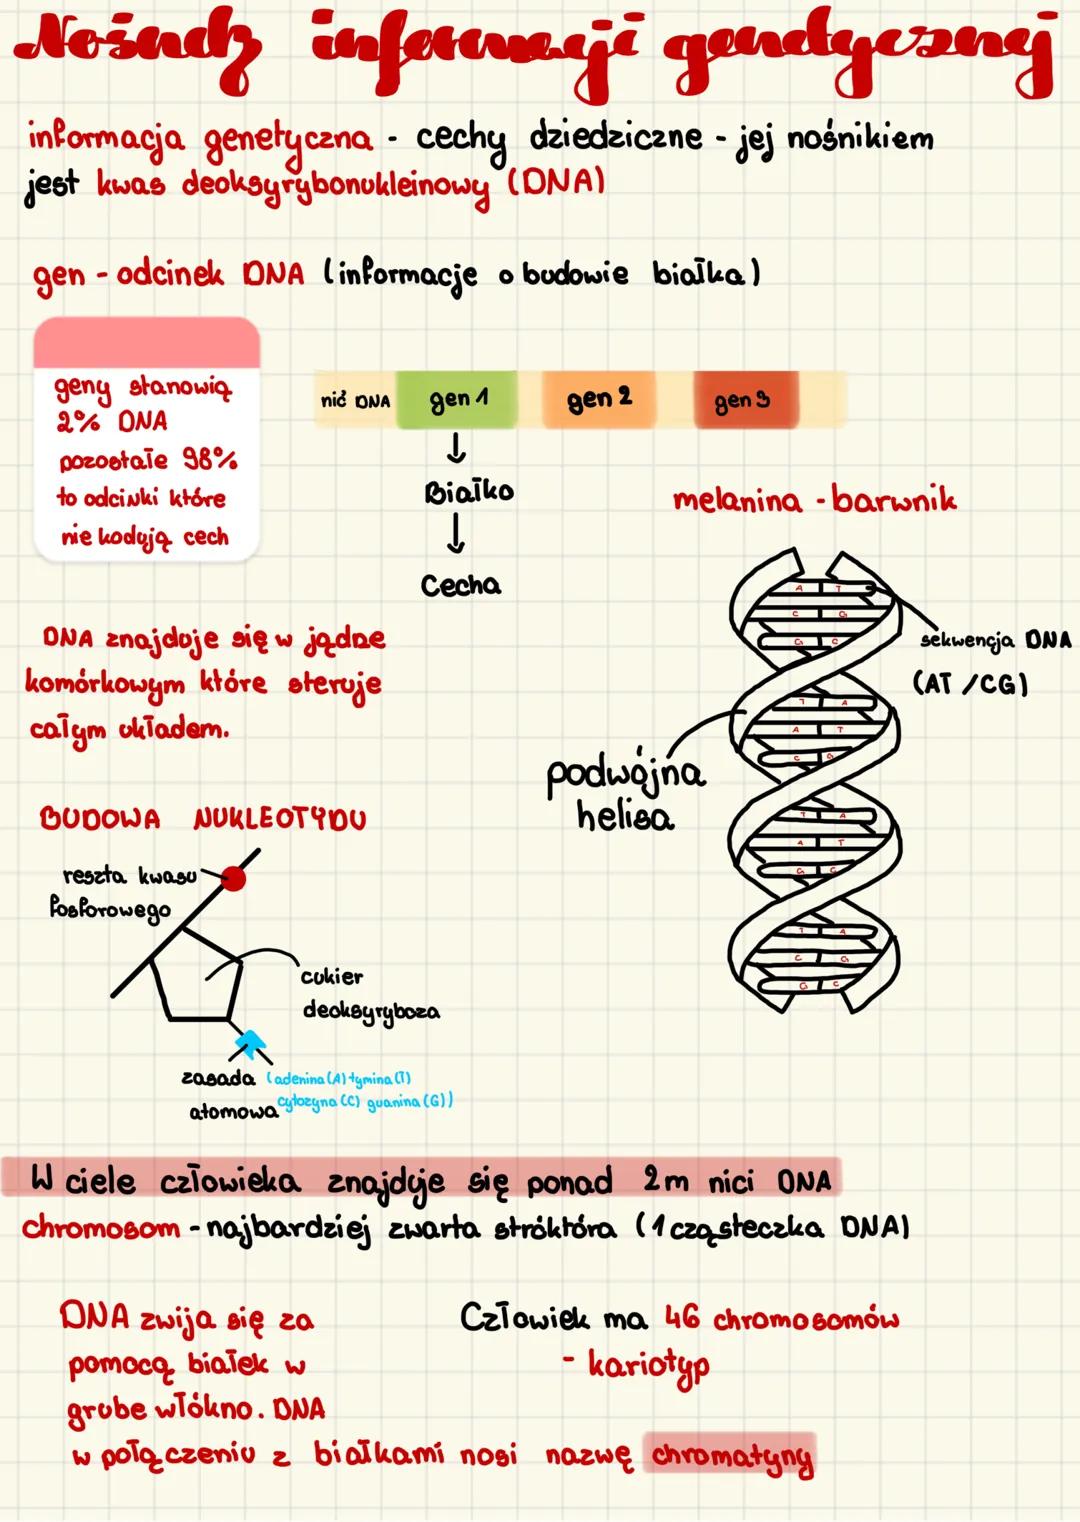 Nośnik informacji genetycznej
informacja genetyczna - cechy dziedziczne - jej nośnikiem
jest kwas deoksyrybonukleinowy (DNA)
gen - odcinek DNA (informacje o budowie białka)
geny stanowią
2% DNA
pozostałe 98%
to odcinki które
nie kodują cech
nić DNA gen 1 gen 2 gen 3
↓
Białko
↓
Cecha
melanina - barwnik
A T
C G
G C
T A
A T
C G
T A
A T
G C
T A
C G
G C
sekwencja DNA
(AT /CG)
podwójna
helisa
DNA znajduje się w jądze
komórkowym które steruje
całym układem.
BUDOWA NUKLEOTYDU
reszta kwasu
fosforowego
cukier
deoksyryboza
zasada (adenina (A) tymina (T)
atomowa cytozyna (C) guanina (G))
W ciele człowieka znajduje się ponad 2m nici DNA
chromosom - najbardziej zwarta stróktóra (1 cząsteczka DNA)
DNA zwija się za
pomocą białek w
grube włókno. DNA
w połączeniu z białkami nosi nazwę chromatyny
Człowiek ma 46 chromosomów
- kariotyp